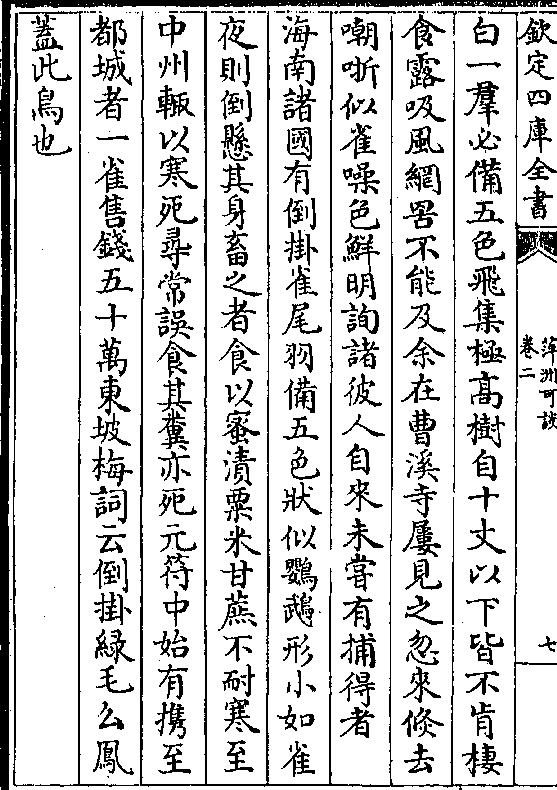 欽定四庫全書
萍洲可談
卷二
七
白一羣必備五色飛集極髙樹自十丈以下皆不肯棲
食露吸風網罟不能及余在曹溪寺屢見之忽來倐去
嘲哳似雀噪色鮮明詢諸彼人自來未嘗有捕得者
海南諸國有倒掛雀尾羽備五色狀似鸚鵡形小如雀
夜則倒懸其身畜之者食以蜜漬粟米甘蔗不耐寒至
中州輙以寒死尋常誤食其糞亦死元符中始有攜至
都城者一雀售錢五十萬東坡梅詞云倒掛緑毛么鳳
蓋此鳥也